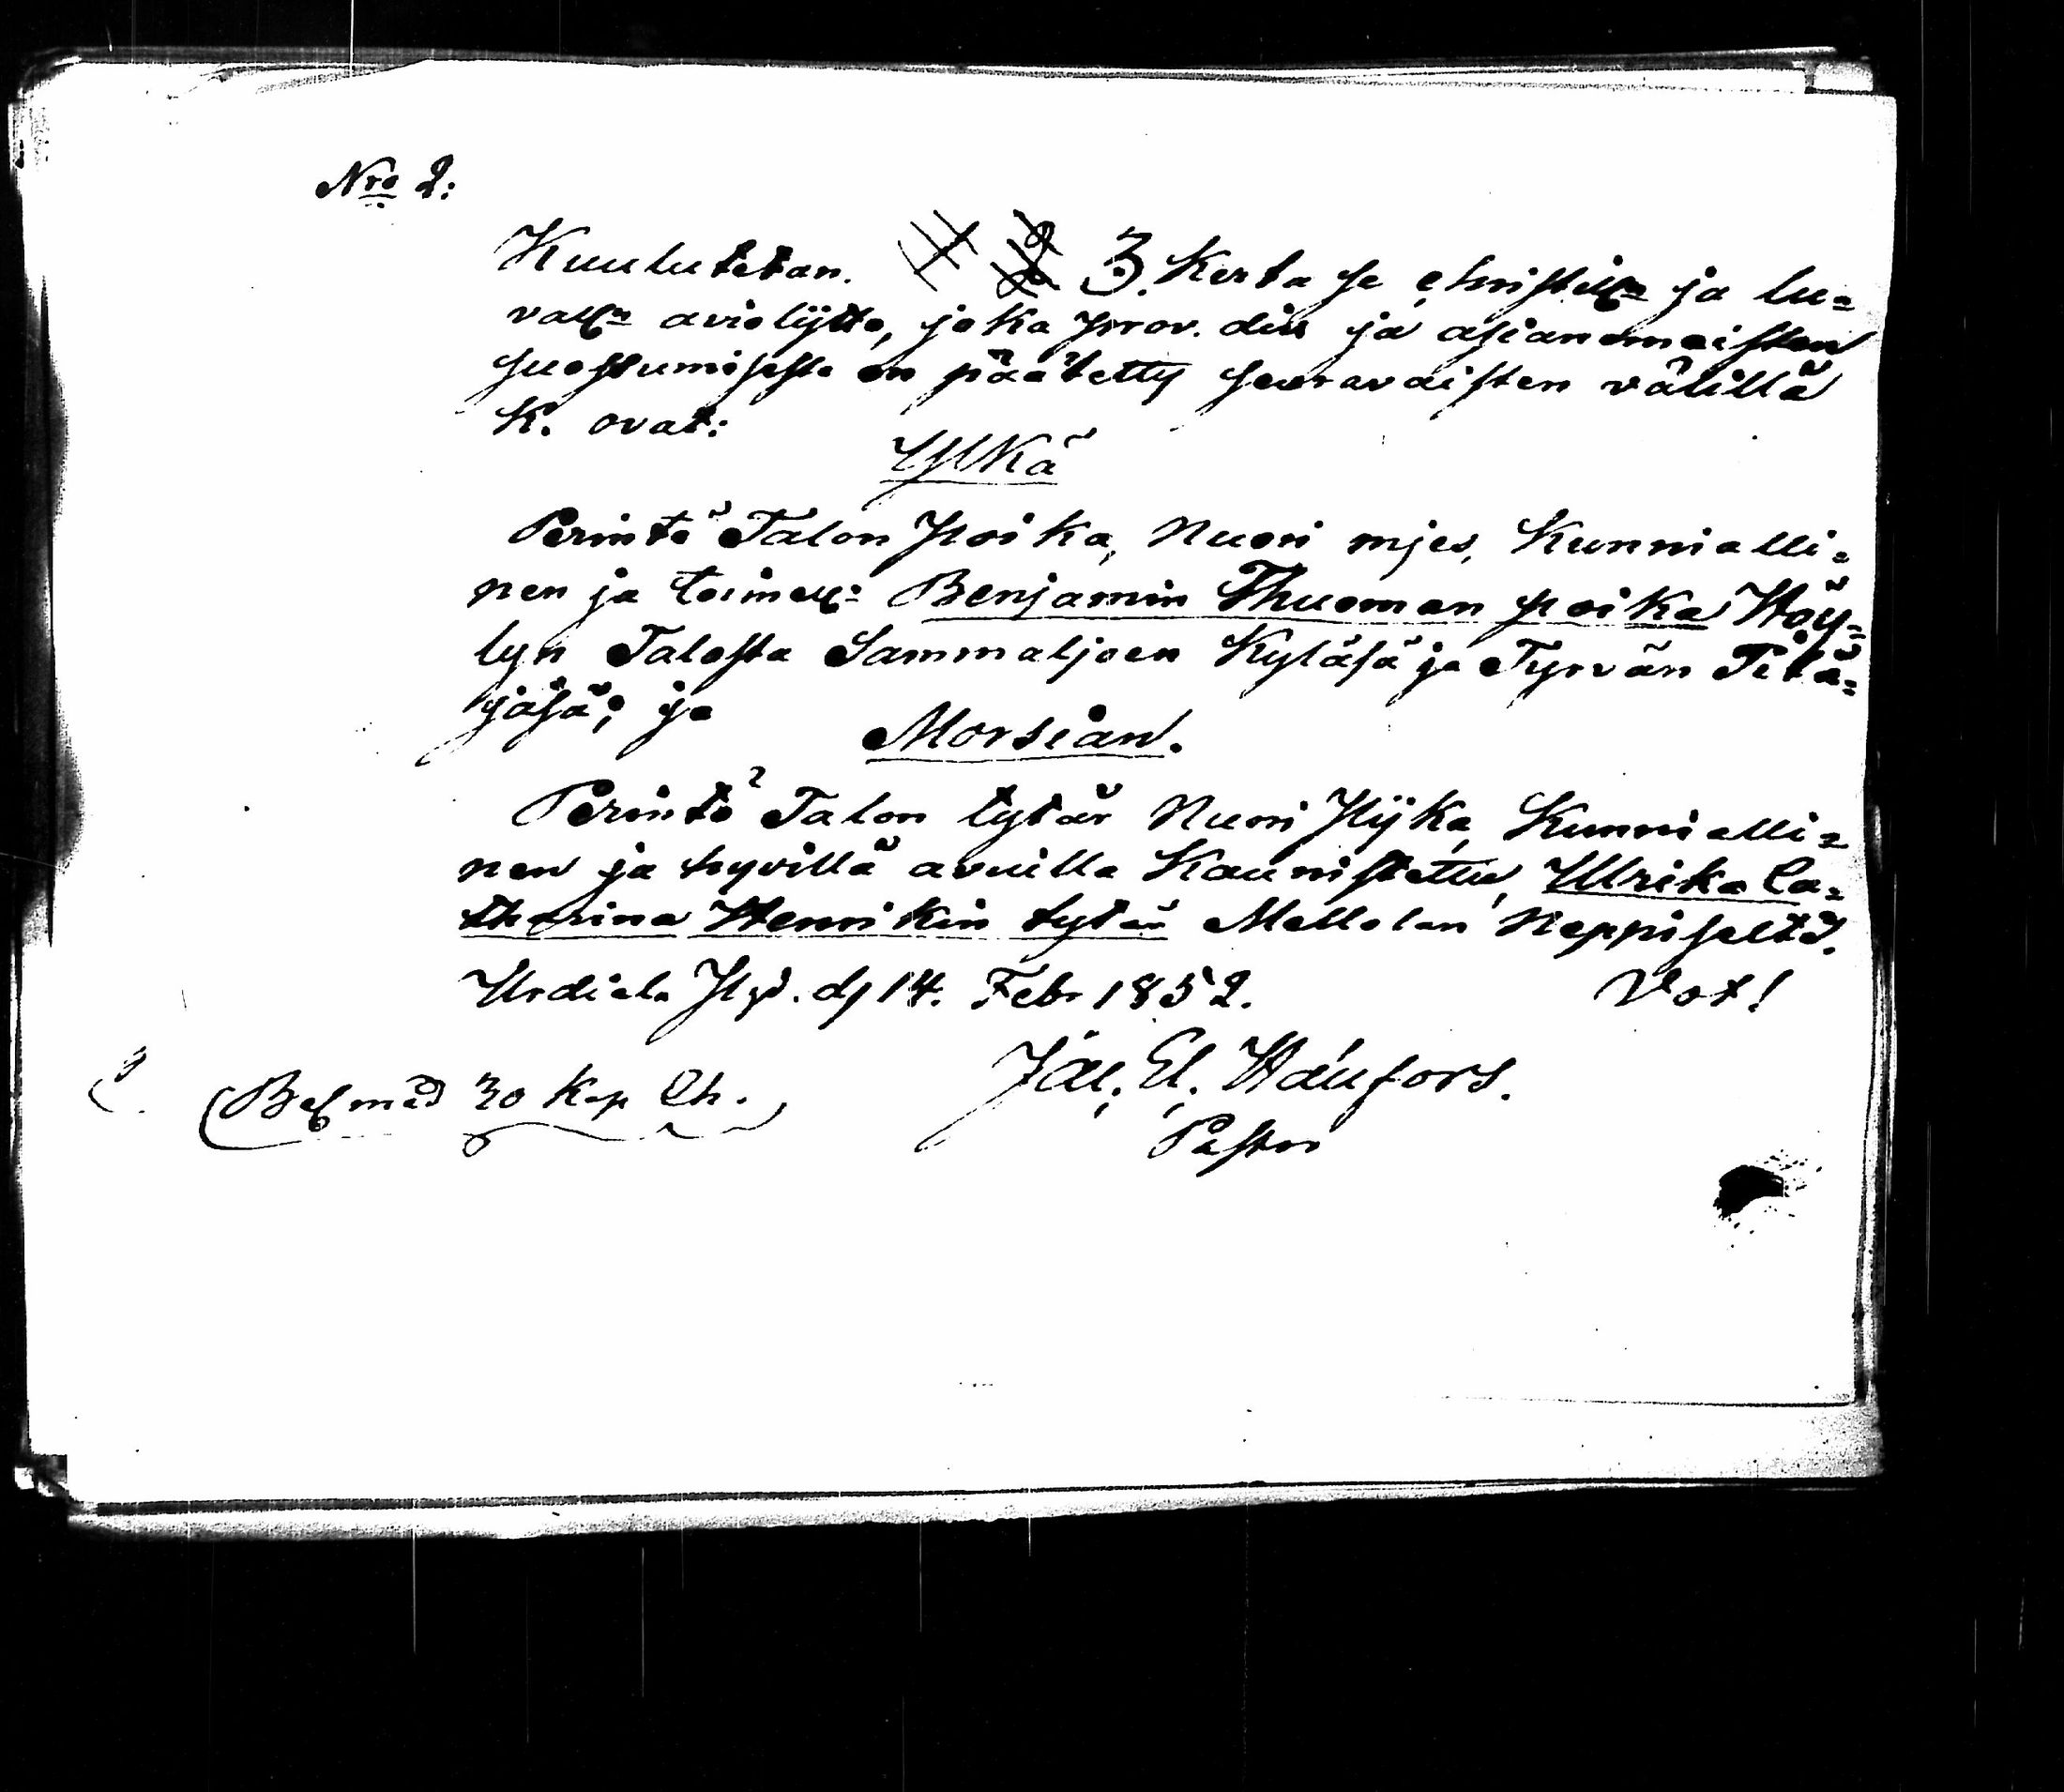 Nro 2:
Kuulutetan. 3. Kerta se christill:n ja lu=
vall:n aviolijtto, joka prov. div. ja asianomaisten
suostumisesta on päätetty seuravaisten välillä
K. ovat:
Ylkä
Perintö Talon Poika, Nuori mjes, Kunnialli=
nen ja toimell: Benjamin Thuoman poika Höy=
lyn Talosta Sammaljoen Kyläsä ja Tyrvän Pitä=
jäsä; ja
Morsian.
Perintö Talon tytär Nuori Pijka, Kunnialli=
nen ja hyvillä avuilla Kaunistettu, Ulrika Ca=
tharina Henrikin tytär Mellolan Neppiseltä.
Urdiala Pgd. d 14. Febr 1852. Vot!
Pastor
30 Kop